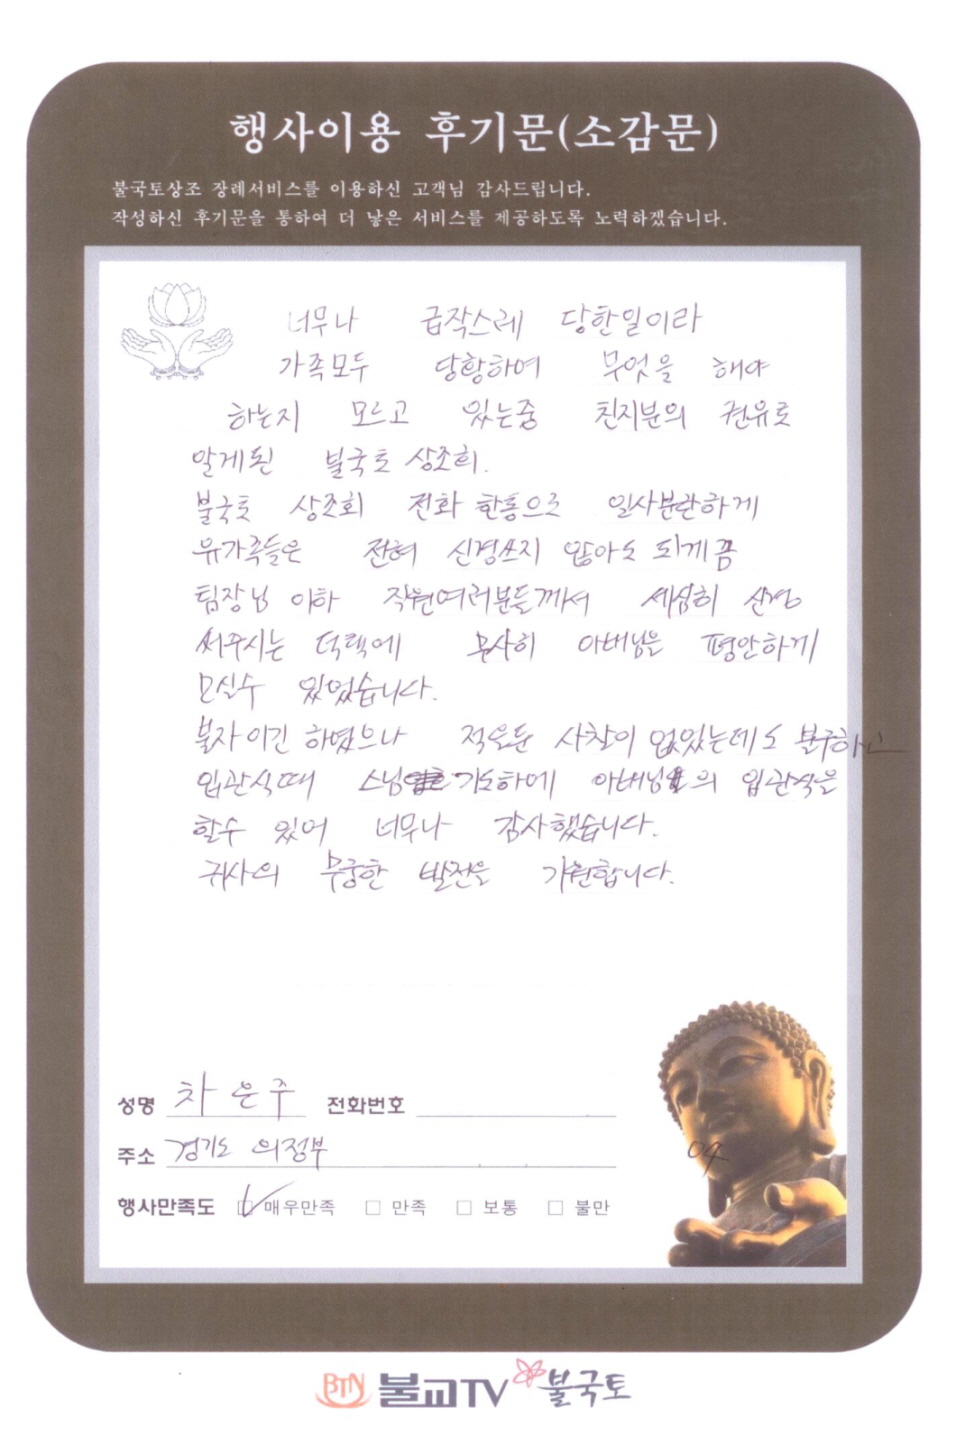 행사이용 후기문(소감문)
불국토상조 장례서비스를 이용하신 고객님 감사드립니다.
작성하신 후기문을 통하여 더 낳은 서비스를 제공하도록 노력하겠습니다.
너무나 급작스레 당한일이라
가족모두 당황하여 무엇을 해야
하는지 모르고 있는중 친지분의 권유로
알게된 불국토 상조회.
불국토 상조회 전화 한통으로 일사분란하게
유가족들은 전혀 신경쓰지 않아도 되게끔
팀장님 이하 직원여러분들께서 세심히 신경
써주시는 덕택에 무사히 아버님을 평안하게
모실수 있었습니다.
불자이긴 하였으나 적을둔 사찰이 없었는데도 불구하고
입관식때 스님 기도하에 아버님의 입관식을
할수 있어 너무나 감사했습니다.
귀사의 무궁한 발전을 기원합니다.
성명 차은주 전화번호
주소 경기도 의정부
04
행사만족도 매우만족 만족 보통 불만
BTN 불교TV 불국토